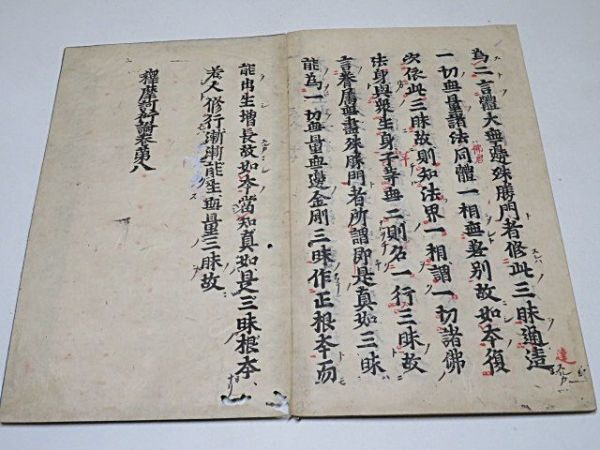 為二言體大無邊殊勝門者修此三昧通達
一切無量諸法同體一相無差別故如本復
次依此三昧故則知法界一相謂一切諸佛
法身與衆生身平等無二則名一行三昧故
言眷属無盡殊勝門者所謂即是真如三昧
能為一切無量無邊金剛三昧作正根本而
能出生增長故如本當知真如是三昧根本
若人修行漸漸能生無量三昧故
釋摩訶衍論卷第八